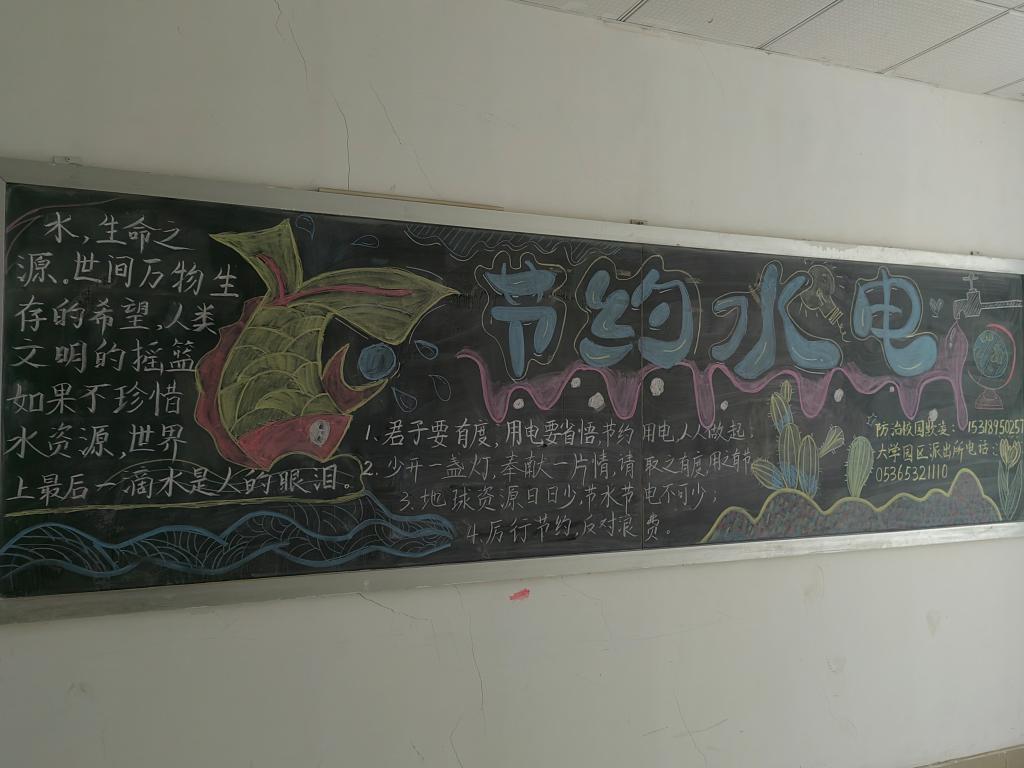 水,生命之
源。世间万物生
存的希望,人类
文明的摇篮
如果不珍惜
水资源,世界
上最后一滴水是人的眼泪。
节约水电
1. 君子要有度,用电要省悟,节约用电,人人做起
2. 少开一盏灯,奉献一片情,请取之有度,用之有节
3. 地球资源日日少,节水节电不可少;
4. 厉行节约,反对浪费。
防治校园欺凌: 15318950257
大学园区派出所电话:
05365321110